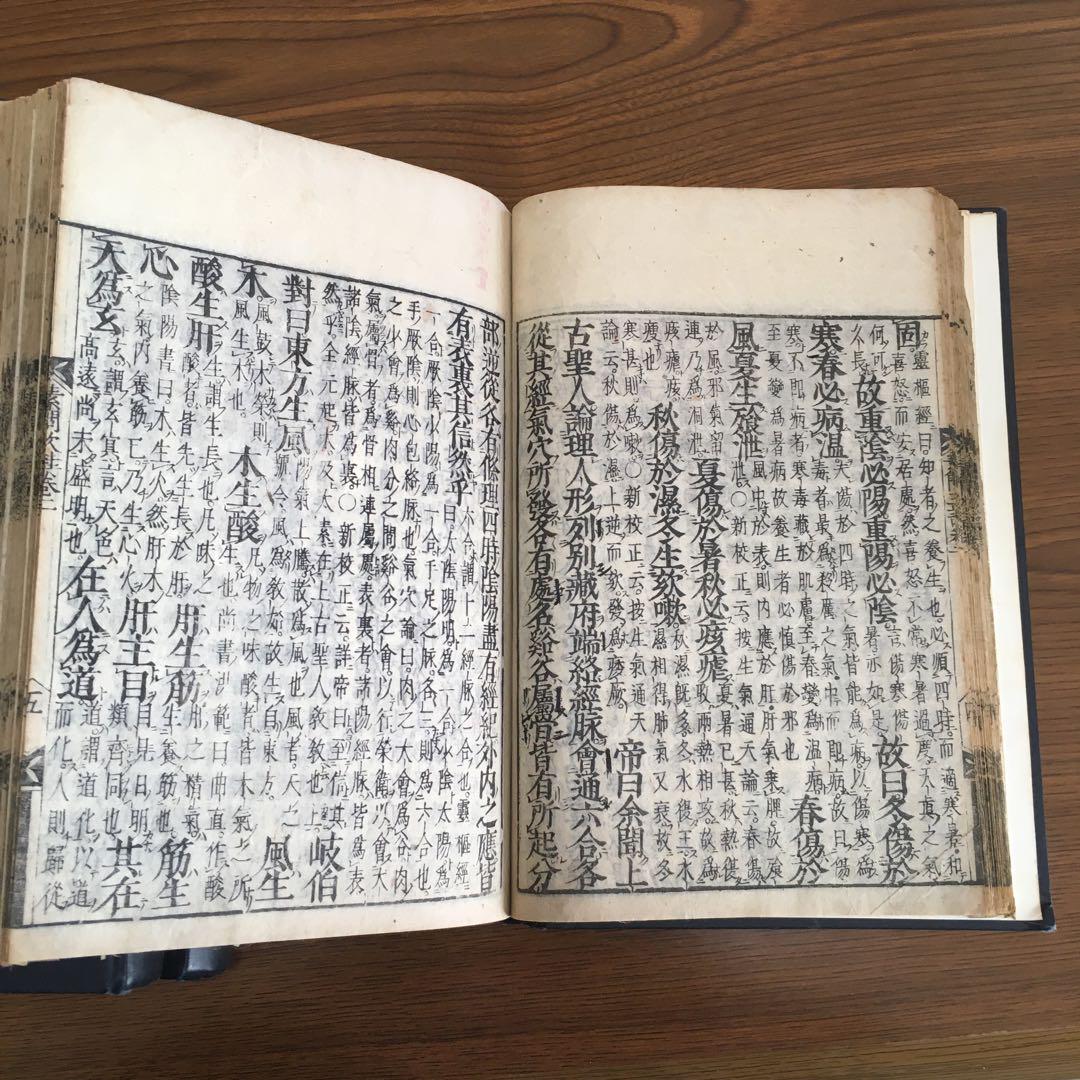 固靈樞經曰知者之養生也必順四時而適寒暑和喜怒而安居處然喜怒不常寒暑過度天真之氣
何可久長故重陰必陽重陽必陰言傷寒傷暑亦如是故曰冬傷於
寒春必病溫夫傷於四時之氣皆能為病以傷寒為毒者最為殺厲之氣中而即病故曰傷
寒不即病者寒毒藏於肌膚至春變為溫病至夏變為暑病故養生者必慎傷於邪也春傷於
風夏生飱泄風中於表則內應於肝肝氣乘脾故飱泄○新校正云按生氣通天論云春傷
於風邪氣留連乃為洞泄夏傷於暑秋必痎瘧夏暑已甚秋熱復收兩熱相攻故為
痎瘧痎瘦瘧也秋傷於濕冬生欬嗽秋濕既多冬水復王水濕相得肺氣又衰故冬
寒甚則為嗽○新校正云按生氣通天論云秋傷於濕上逆而欬發為痿厥帝曰余聞上
古聖人論理人形列別藏府端絡經脉會通六合各
從其經氣穴所發各有處名谿谷屬骨皆有所起分
部逆從各有條理四時陰陽盡有經紀外內之應皆
有表裏其信然乎六合謂十二經脉之合也靈樞經曰太陰陽明為一合少陰太陽為
一合厥陰少陽為一合手足之脉各三則為六合也手厥陰則心包絡脉也氣穴論曰肉之大會為谷肉
之少會為谿肉分之間谿谷之會以行榮衛以會大氣屬骨者為骨相連屬處表裏者諸陽經脉皆為表
諸陰經脉皆為裏○新校正云詳帝曰至信其然乎全元起本及太素在上古聖人之教也上岐伯
對曰東方生風陽氣上騰散為風也風者天之號令風為教始故生自東方風生
木風鼓木榮則風生木也木生酸凡物之味酸者皆木氣之所生也尚書洪範曰曲直作酸
酸生肝生謂生長也凡味之酸者皆先生長於肝肝生筋肝之精氣生養筋也筋生
心陰陽書曰木生火然肝木之氣內養筋已乃生心火肝主目目見曰明類齊同也其在
天為玄玄謂玄冥言天色高遠尚未盛明也在人為道道謂道化以道而化人則歸從
五